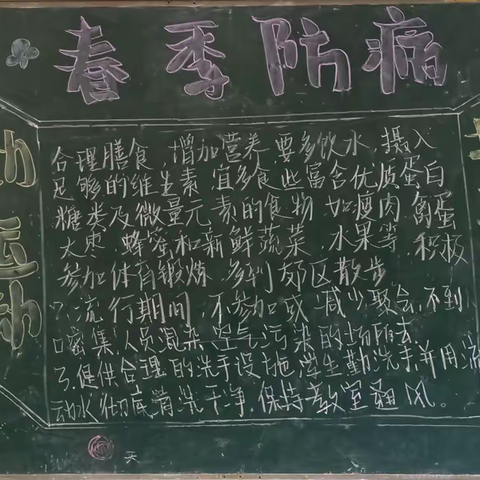 春季防病
合理膳食,增加营养,要多饮水,摄入
足够的维生素,宜多食些富含优质蛋白
糖类及微量元素的食物 如瘦肉 禽蛋
大枣 蜂蜜和新鲜蔬菜 水果等 积极
参加体育锻炼 多到郊区散步
2.流行期间,不参加或减少聚会,不到
人员混杂 空气污染的场所去
3.提供合理的洗手设施,学生勤洗手并用流
动水彻底清洗干净,保持教室通风。
运动
天